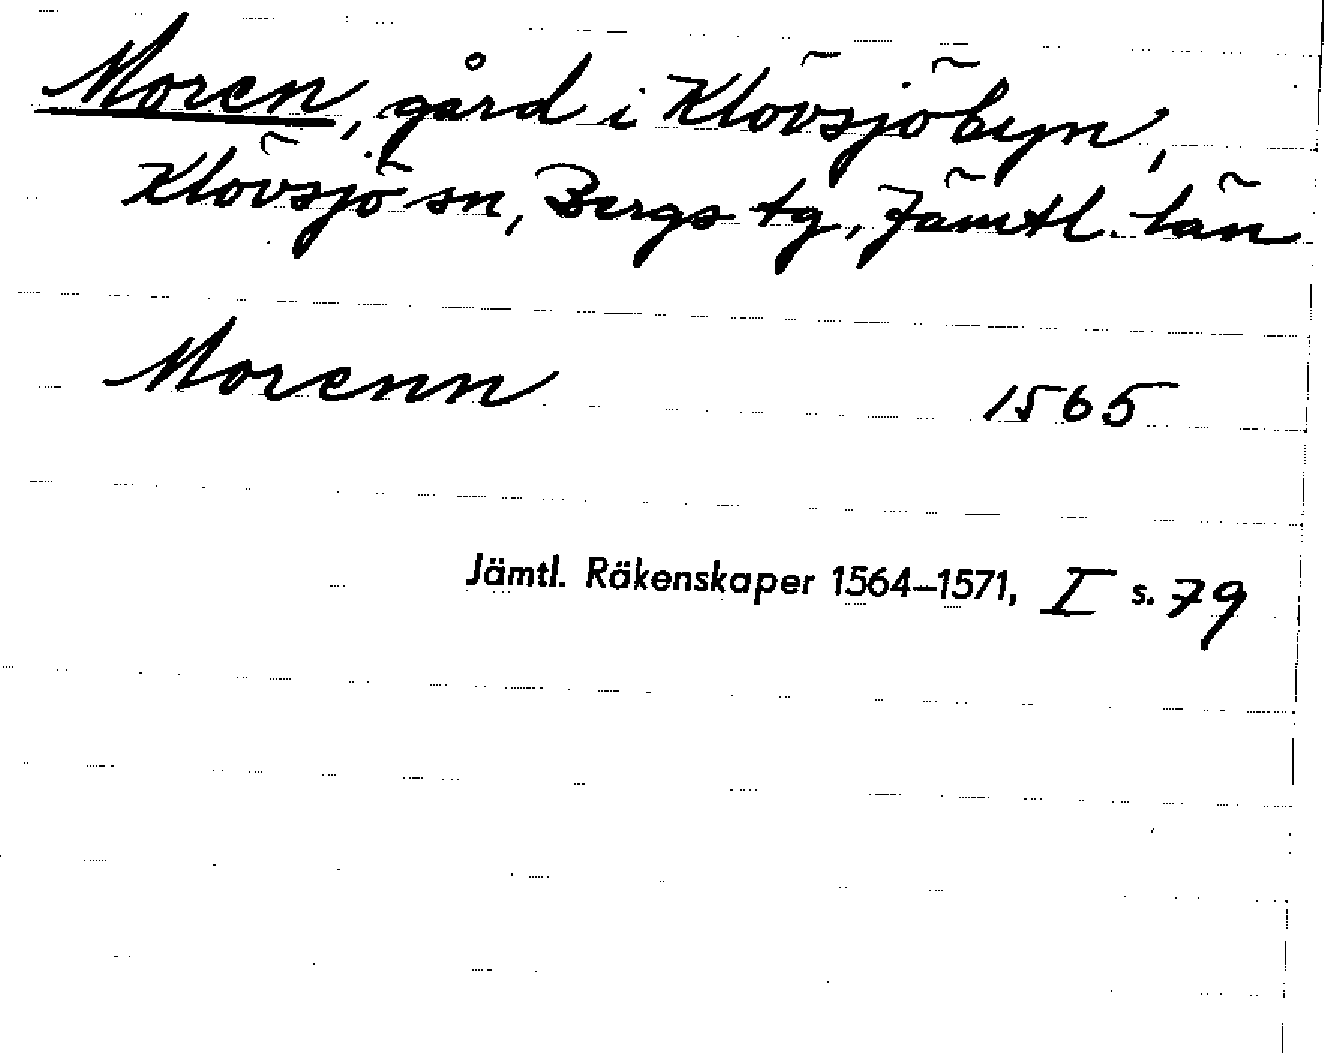 Moren, gård i Klövsjöbyn,
Klövsjö sn, Bergs tg, Jämtl. län
Morenn 1565
Jämtl. Räkenskaper 1564–1571, I s. 79